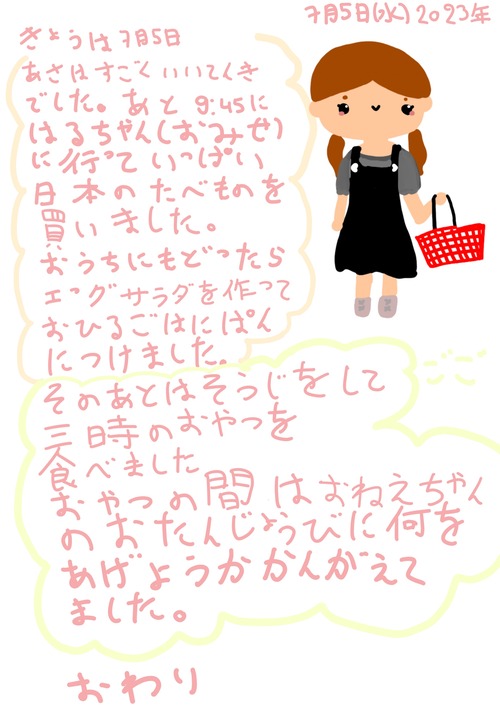 7月5日(水)2023年
きょうは7月5日
あさはすごくいいてんき
でした。あと9:45に
はるちゃん(おみせ)
に行っていっぱい
日本のたべものを
買いました。
おうちにもどったら
エッグサラダを作って
おひるごはにぱん
につけました。
ごご
そのあとはそうじをして
三時のおやつを
食べました
おやつの間はおねえちゃん
のおたんじょうびに何を
あげようかかんがえて
ました。
おわり